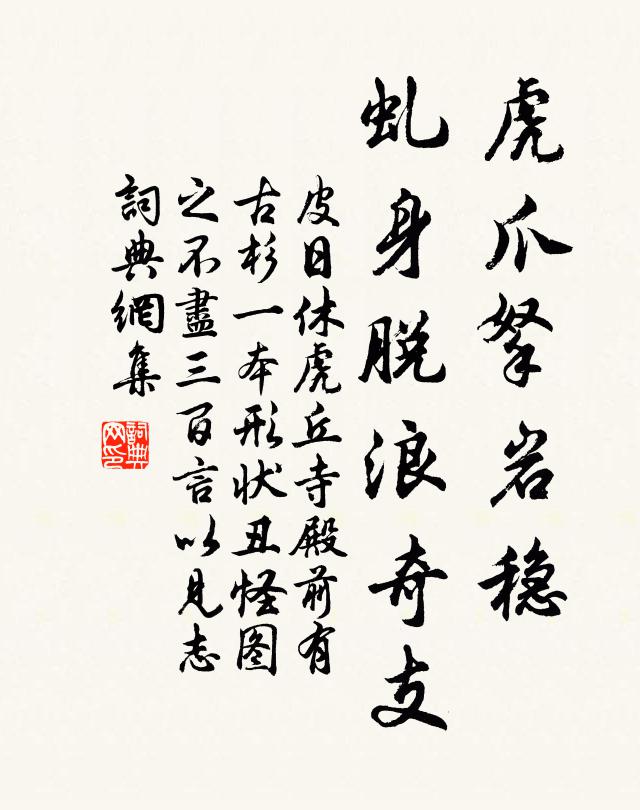 虎爪拏岩稳
虬身脱浪奇支
皮日休虎丘寺殿前有
古杉一本形状丑怪图
之不盡三百言以見志
詞典網集
詞典
网印